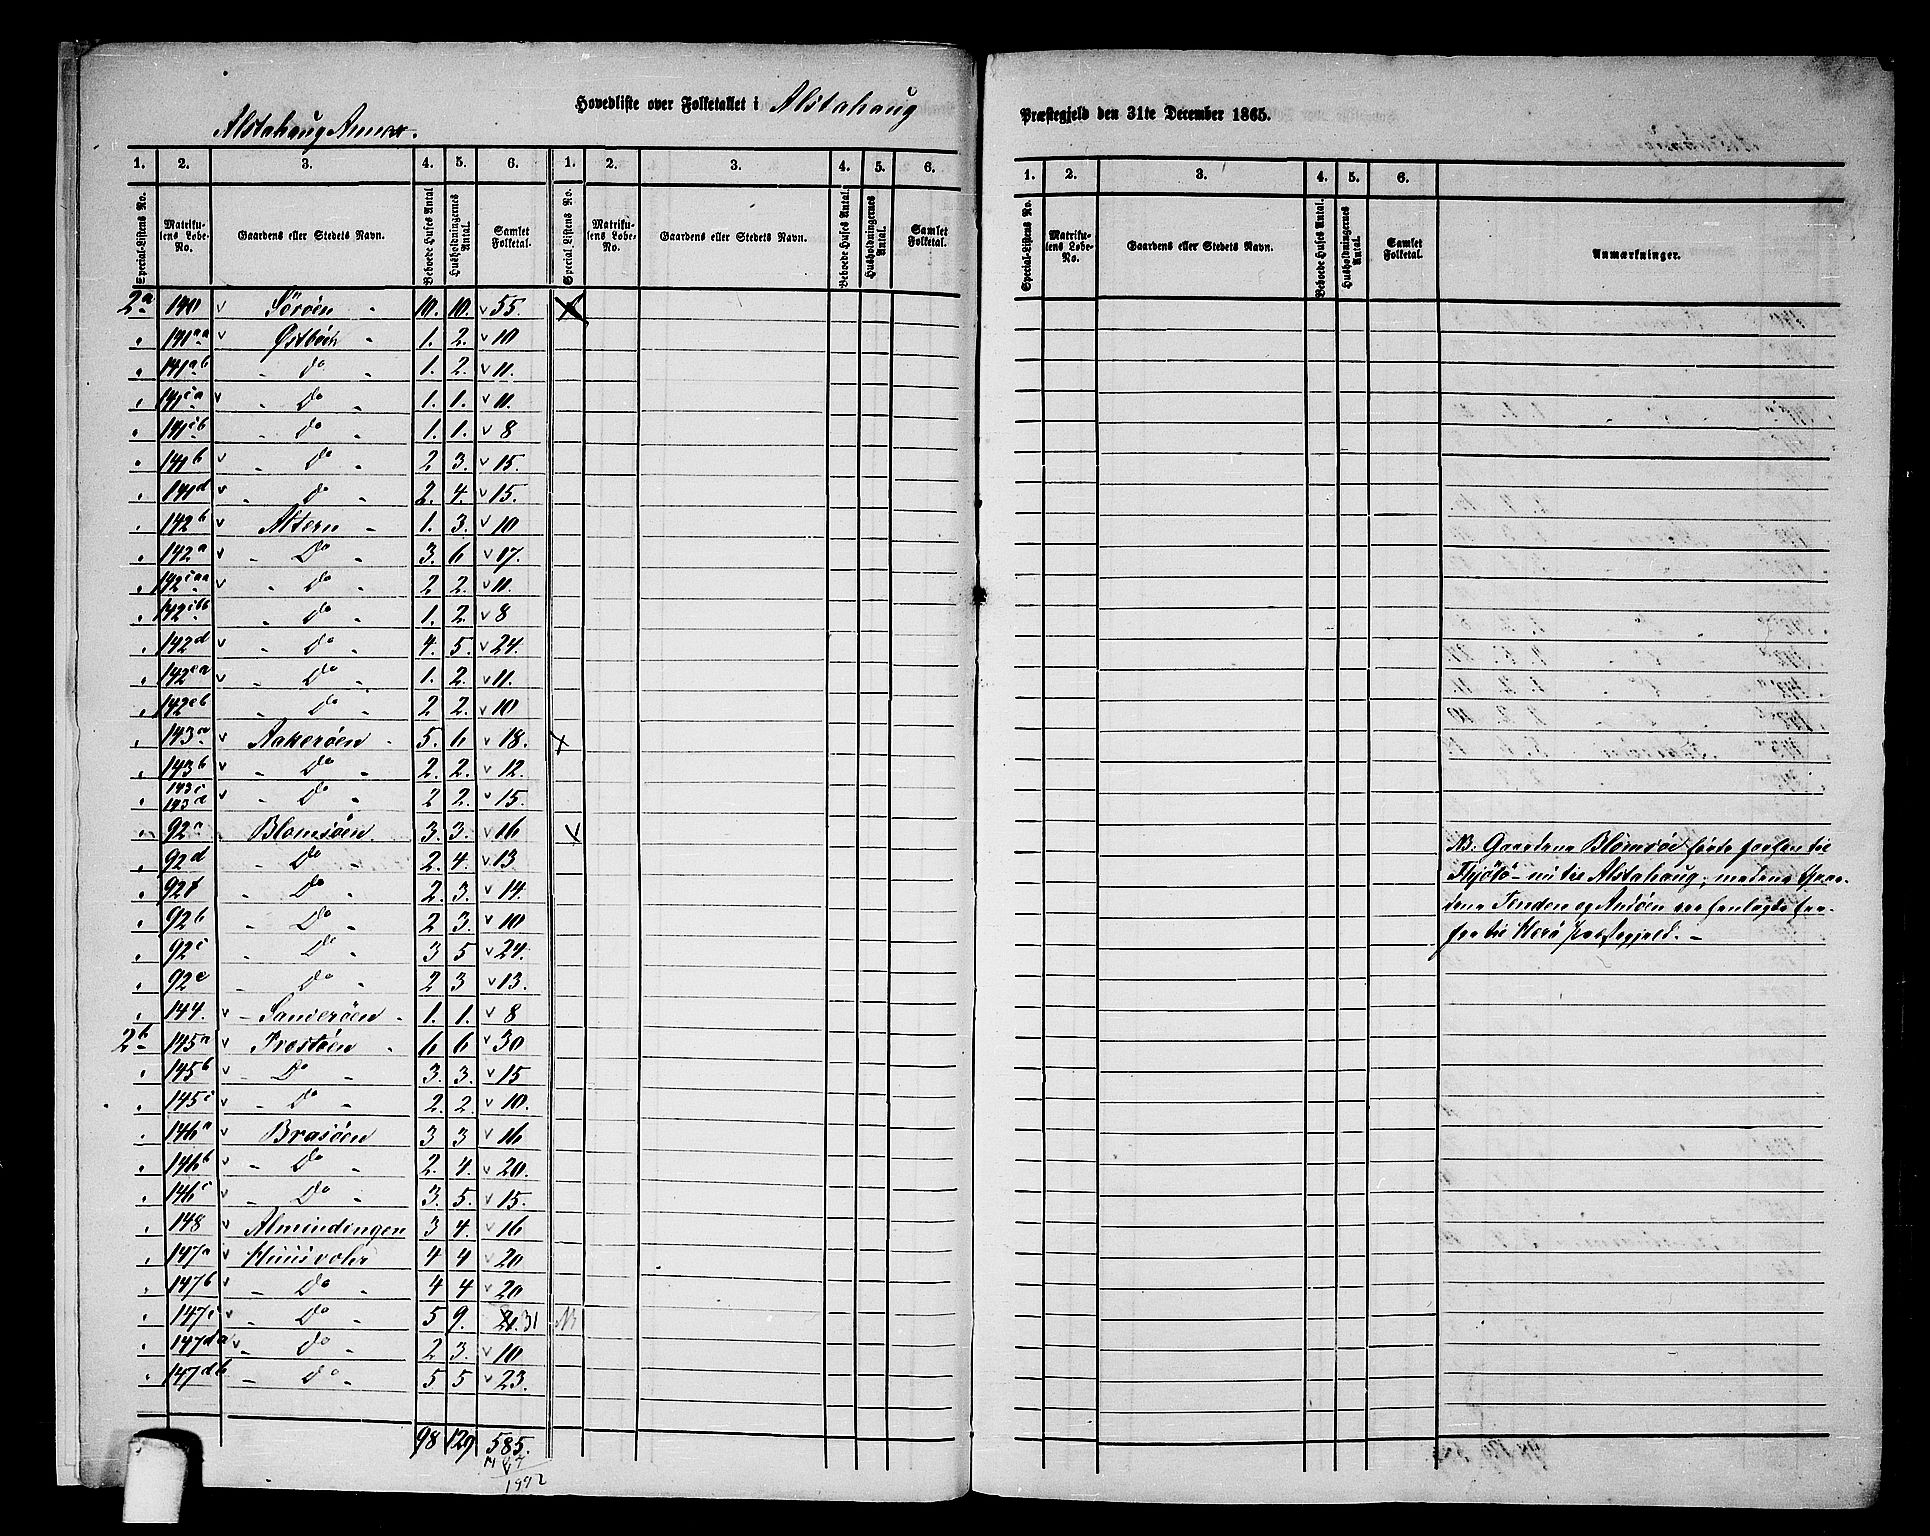 Hovedliste over Folketallet i Alstahaug
Alstahaug Annex.
Præstegjeld den 31te December 1865.
1. 2. 3. 4. 5. 6. 1. 2. 3. 4. 5. 6.
1. 2. 3. 4. 5. 6.
Special-Listens No. Matrikulens Løbe-No. Gaardens eller Stedets Navn. Beboede Huses Antal Husholdningernes Antal. Samlet Folketal. Special Listens No. Matrikulens Løbe-No. Gaardens eller Stedets Navn. Beboede Huses Antal. Husholdningernes Antal. Samlet Folketal.
Special-Listens No. Matrikulens Løbe-No. Gaardens eller Stedets Navn. Beboede Huses Antal. Husholdningernes Antal. Samlet Folketal. Anmærkninger.
2a 140 v Söröen " 10. 10. v 55. X
" 141aa v Østböe " 1. 2. v 10
" 141ab " Do " 1. 2. v 11.
" 141ca v " Do " 1. 1. v 11.
" 141cb " Do " 1. 1. v 8
" 141b v " Do " 2 3. v 15.
" 141d v " Do " 2. 4. v 15.
" 142b v Altern " 1. 3. v 10
" 142a v " Do " 3. 6 v 17.
" 142caa v " Do " 2 2. v 11.
" 142cbb " Do " 1. 2. v 8
" 142d v " Do " 4. 5. v 24.
" 142ea v " Do " 1. 2. v 11.
" 142eb " Do " 2 2. v 10
" 143a v Aakeröen " 5. 6 v 18. X
" 143b v " Do " 2. 2. v 12.
" 143c 143d v " Do " 2 2. v 15.
" 92a Blomsöen 3. 3. v 16 X
" 92d " Do " 2. 4. v 13.
" 92f " Do " 2. 3. v 14
" 92b " Do " 2 3. v 10
" 92c " Do " 3 5 v 24.
" 92e " Do " 2 3 v 13.
" 144. v Sanderöen " 1. 1. v 8
2b 145a v Trostöen " 6 6 v 30
" 145b v " Do " 3. 3. v 15
" 145c v " Do " 2. 2. v 10.
" 146a v Brasöen 3 3 v 16
" 146b v " Do " 2. 4. v 20.
" 146c v " Do " 3. 5. v 15.
" 148 v Almindingen 3 4. v 16
" 147a v 4 4 v 20
" 147b v " Do " 4 4 v 20
" 147c v " Do " 5 9. 31
" 147da v " Do " 2 3. v 10
" 147db " Do " 5 5 v 23.
98 129 585.
1992
NB: Gaardene Blomsöe hörte forhen til
Thjötö - nu til Alstahaug; medens Gaar-
dene Tenden og Andöen ere henlagte her-
fra til Herö Præstegjeld. -